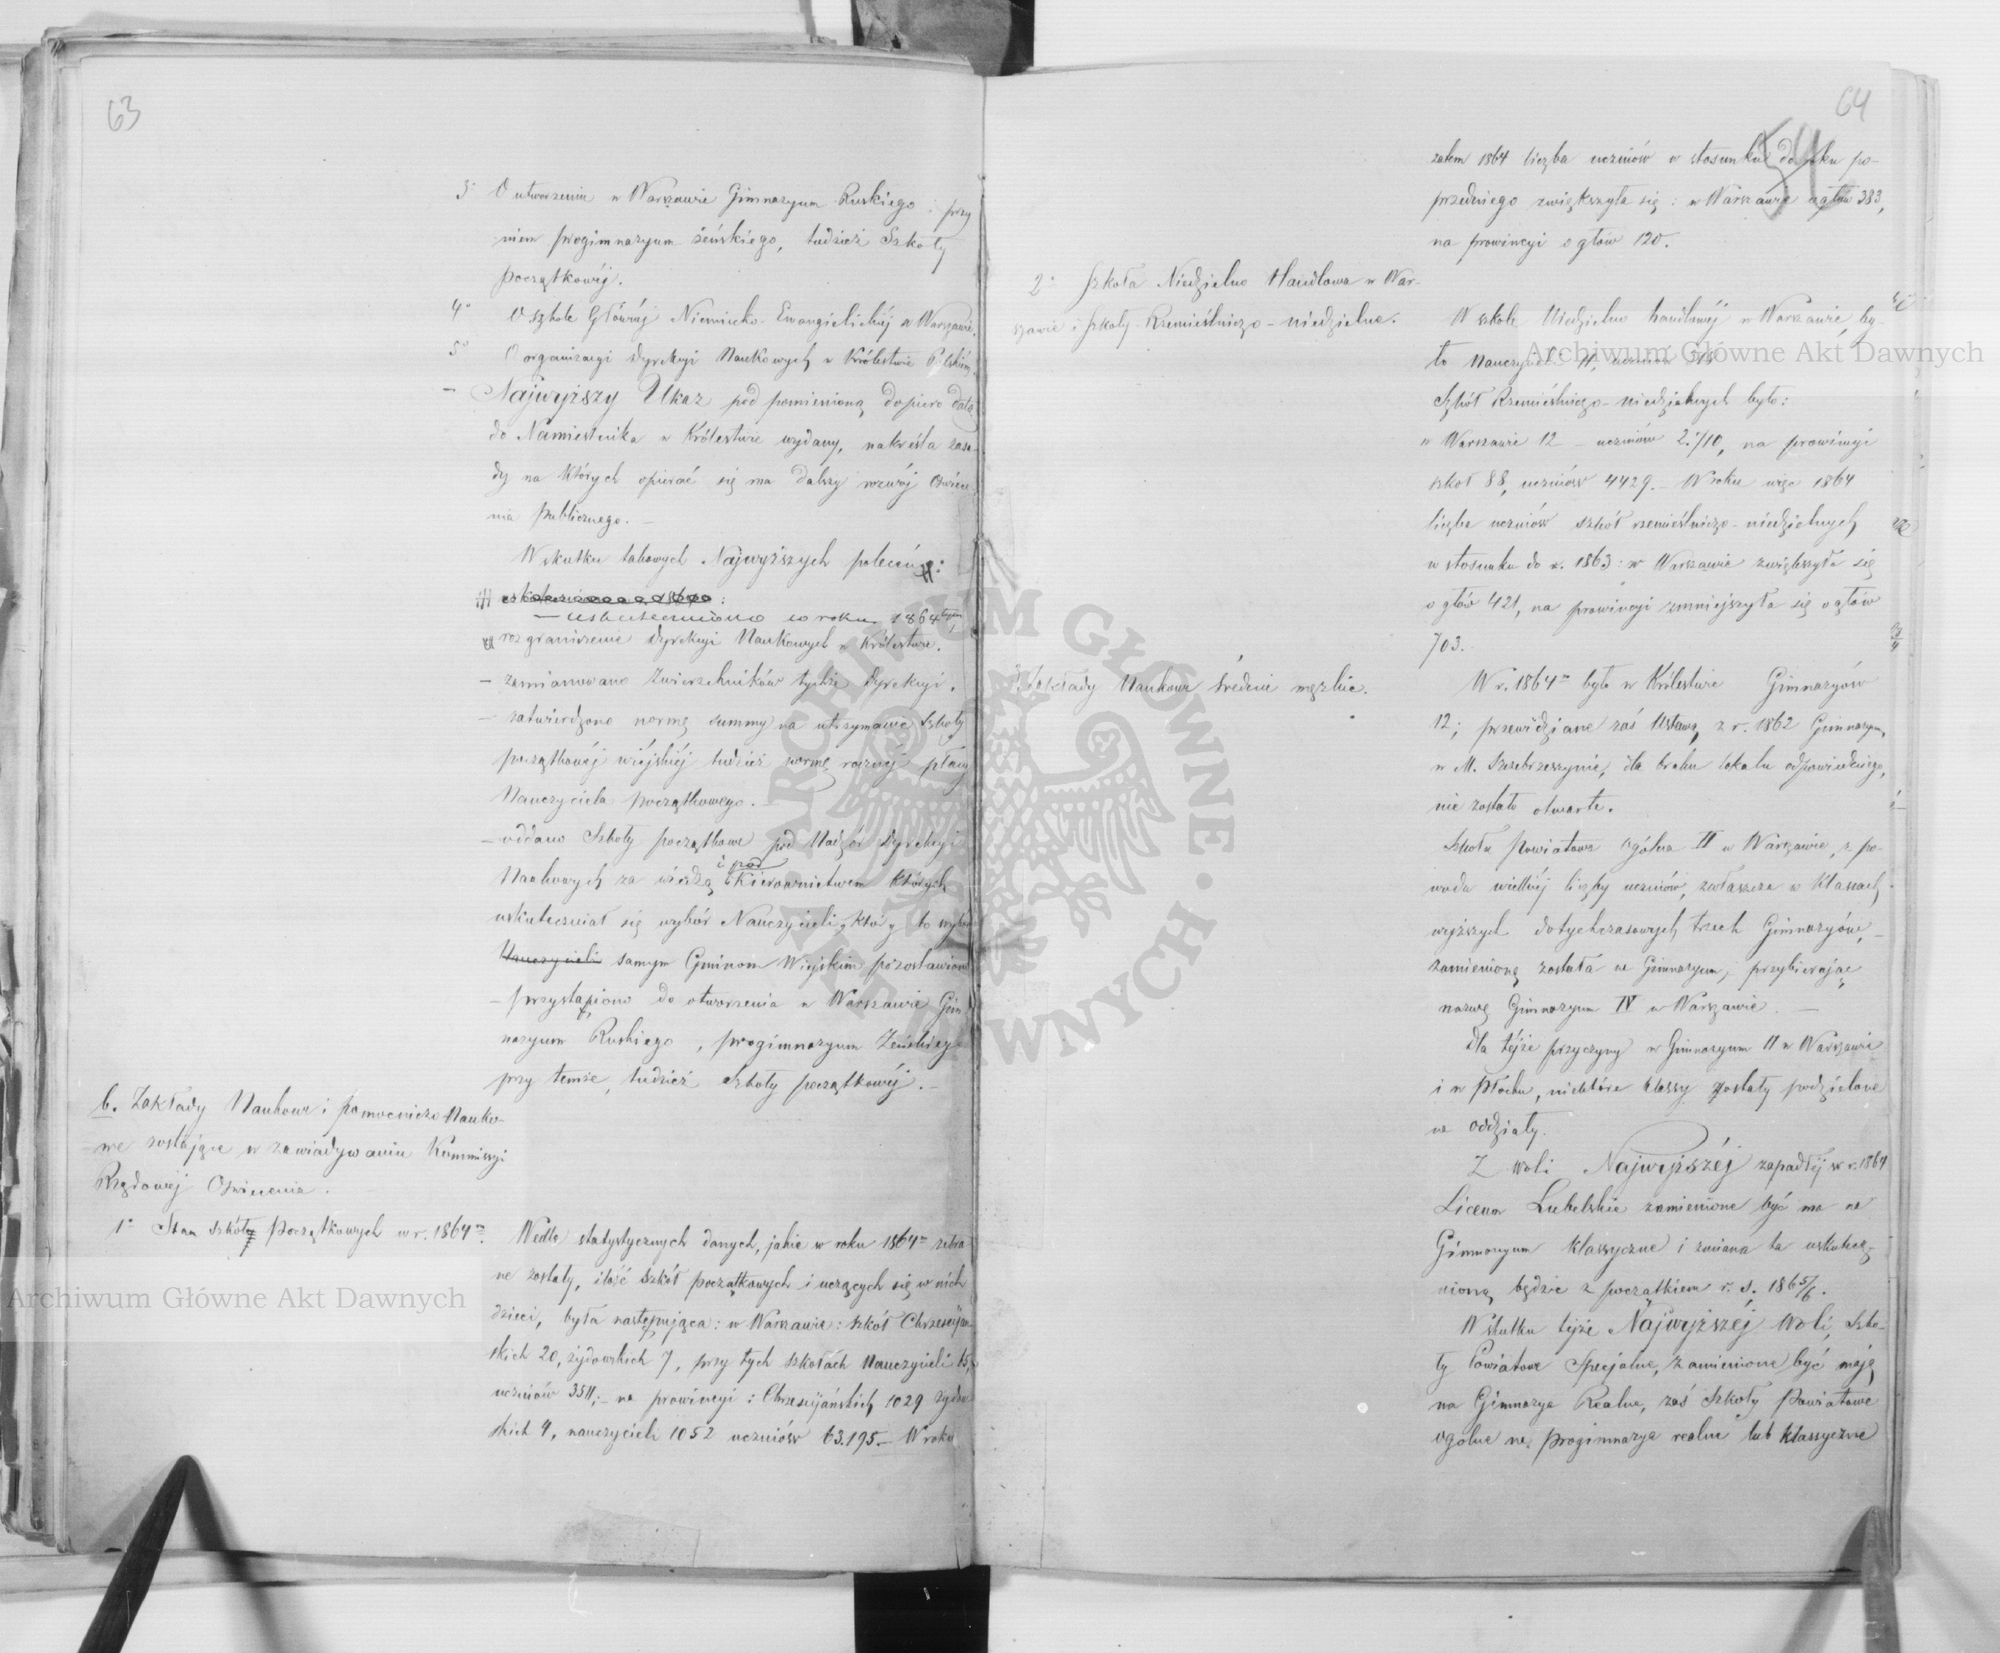 63
3° O utworzeniu w Warszawie Gimnazyum Ruskiego i przy
niem progimnazyum żeńskiego, tudzież Szkoły
początkowéj.
4° O szkole Głównéj Niemiecko-Ewangielickiéj w Warszawie.
5° O organizacyi Dyrekcyi Naukowych w Królestwie Polskiém.
– Najwyższy Ukaz pod pomienioną dopiero datą
do Namiestnika w Królestwie wydany, nakreśla zasa-
dy na których opierać się ma dalszy rozwój Oświece-
nia publicznego. –
W skutku takowych Najwyższych poleceń:
– uskuteczniono w roku 1864tym
rozgraniczenie Dyrekcyi Naukowych w Królestwie.
– zamianowano Zwierzchników tychże Dyrekcyi.
– zatwierdzono normę summy na utrzymanie Szkoły
początkowéj wiejskiéj tudzież normę rocznéj płacy
Nauczyciela początkowego. –
– oddano Szkoły początkowe pod Nadzór Dyrekcyi
Naukowych za wiedzą i pod Kierownictwem których
uskuteczniał się wybór Nauczycieli, któr to wybór
Nauczycieli samym Gminom Wiejskim pozostawiono
– przystąpiono do otworzenia w Warszawie Gim-
nazyum Ruskiego, progimnazyum Żeńskiego
przy temże, tudzież Szkoły początkowéj. –
b. Zakłady Naukowe i pomocniczo Nauko-
we zostające w zawiadywaniu Kommissyi
Rządowéj Oświecenia.
1° Stan Szkół Początkowych w r. 1864m.
Wedle statystycznych danych, jakie w roku 1864m zebra-
ne zostały, ilość szkół początkowych i uczących się w nich
dzieci, była następująca: w Warszawie: szkół Chrześcijań-
skich 20, żydowskich 7, przy tych szkołach Nauczycieli
uczniów 3511; – na prowincyi: Chrześcijańskich 1029 żydow-
skich 4, nauczycieli 1052 uczniów 63.195. – W roku
64
54
zatem 1864 liczba uczniów w stosunku do roku po-
przedniego zwiększyła się: w Warszawie o głów 383,
na prowincyi o głów 120.
2° Szkoła Niedzielno Handlowa w War-
szawie i Szkoły Rzemieślniczo-niedzielne.
W szkole Niedzielno handlowéj w Warszawie, by-
ło Nauczycieli 11, uczniów
Szkół Rzemieślniczo-niedzielnych było:
w Warszawie 12 – uczniów 2.710, na prowincyi
szkół 88, uczniów 4429. – W roku więc 1864
liczba uczniów szkół rzemieślniczo-niedzielnych,
w stosunku do r. 1863: w Warszawie zwiększyła się
o głów 421, na prowincyi zmniejszyła się o głów
703.
3. Zakłady Naukowe średnie męzkie.
W r. 1864m było w Królestwie Gimnazyów
12; przewidziane zaś Ustawą z r. 1862 Gimnazyum,
w M. Szczebrzeszynie, dla braku lokalu odpowiedniego,
nie zostało otwarte.
Szkoła Powiatowa Ogólna II w Warszawie, z po-
wodu wielkiéj liczby uczniów, zwłaszcza w Klasach
wyższych dotychczasowych trzech Gimnazyów, –
zamienioną została na Gimnazyum, przybierając
nazwę Gimnazyum IV w Warszawie. –
Dla téjże przyczyny w Gimnazyum II w Warszawie
i w Płocku, niektóre klassy zostały podzielone
na oddziały.
Z woli Najwyższéj zapadłéj w r. 1864
Liceum Lubelskie zamienione być ma na
Gimnazyum klassyczne i zmiana ta uskutecz-
nioną będzie z początkiem r. s. 1865/6.
W skutku téjże Najwyższéj Woli, Szko-
ły Powiatowe Specjalne, zamienione być mają
na Gimnazya Realne, zaś Szkoły Powiatowe
Ogólne na progimnazya realne lub klassyczne
Archiwum Główne Akt Dawnych
Archiwum Główne Akt Dawnych
ARCHIWUM GŁÓWNE AKT DAWNYCH